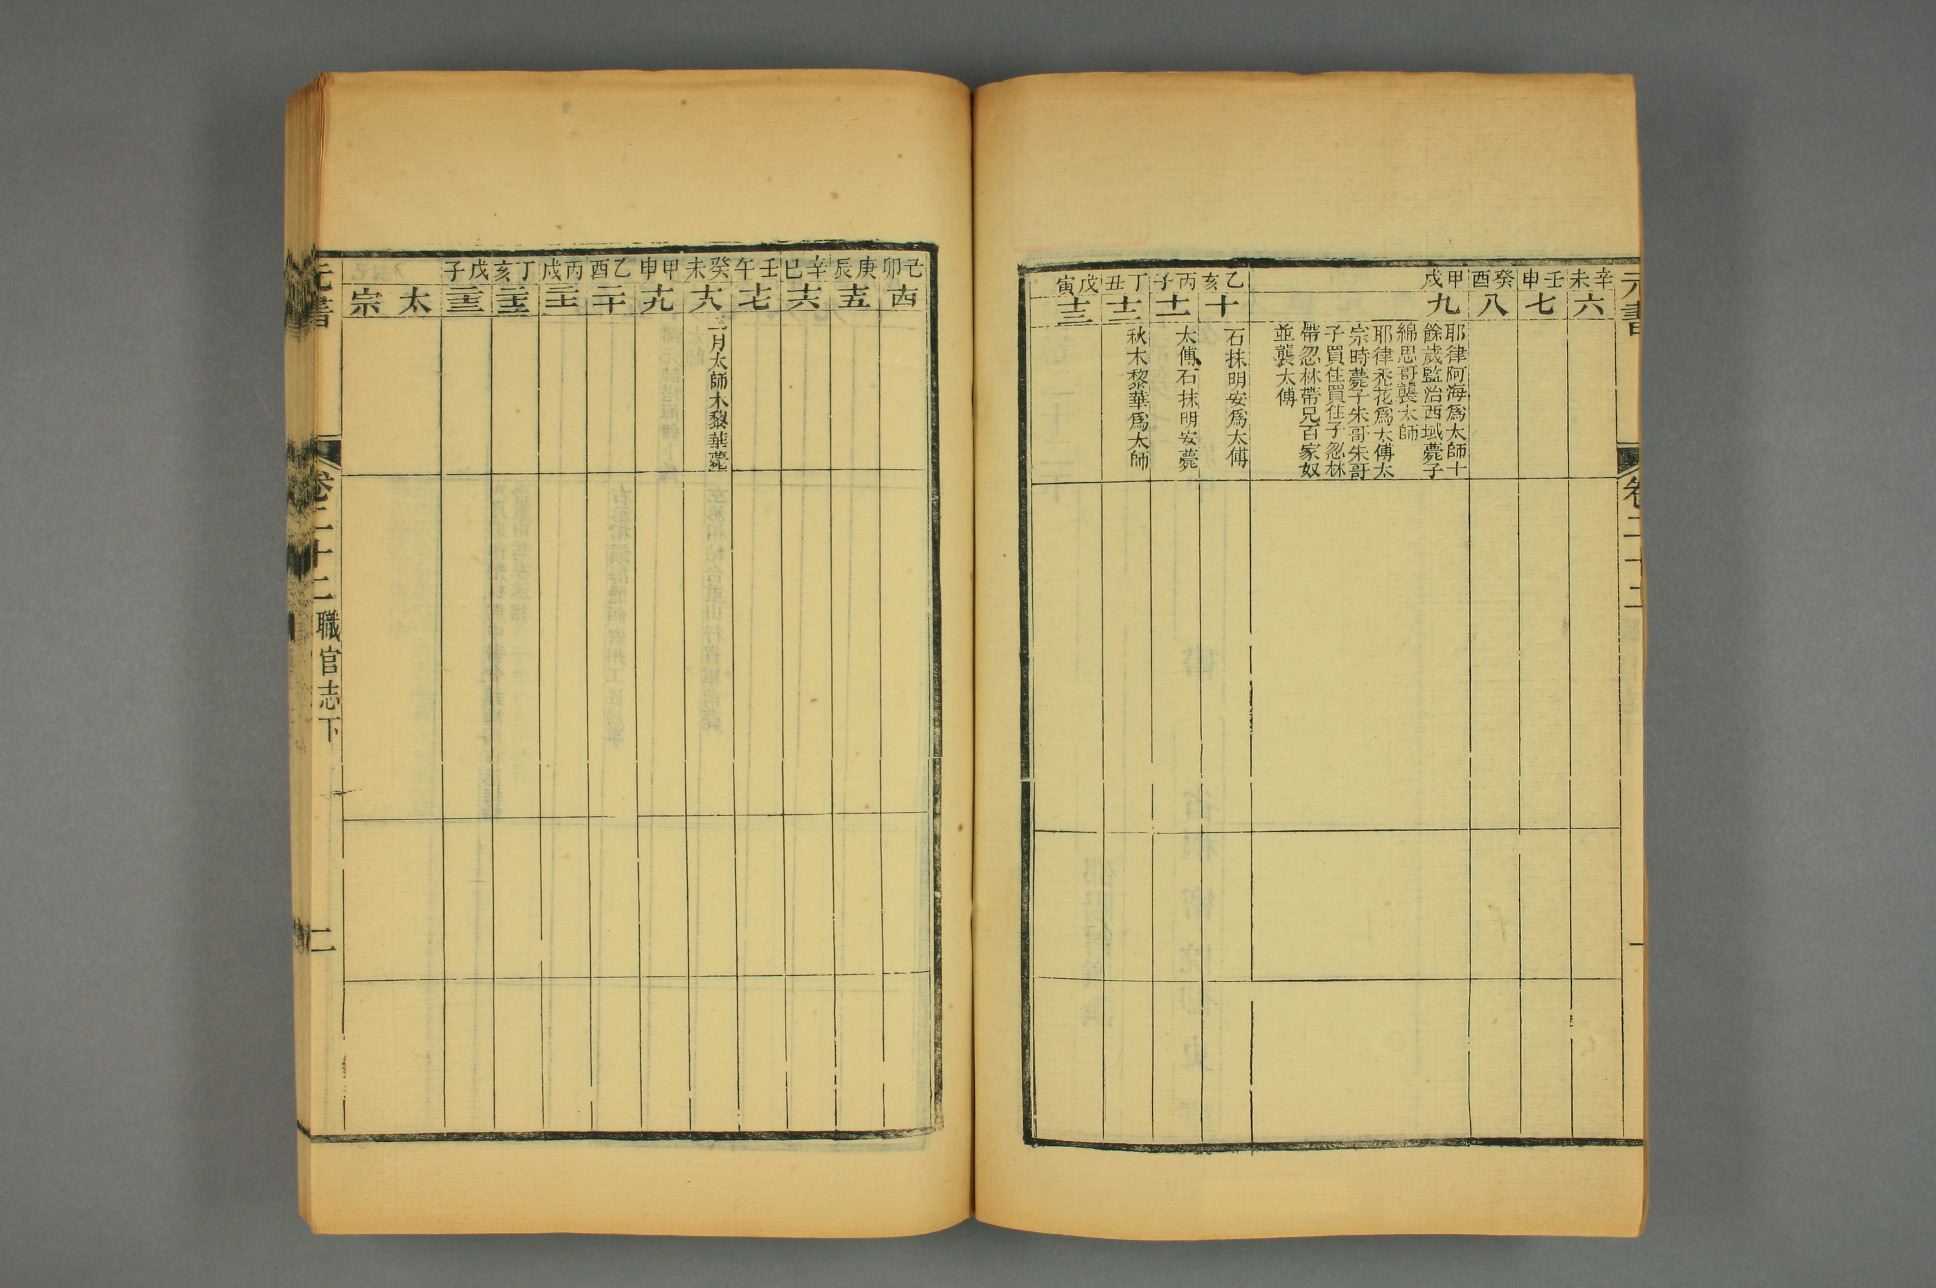 元書
卷二十二
辛未
六
壬申
七
癸酉
八
甲戌
九
耶律阿海爲太師十
餘歲監治西域薨子
綿思哥襲太師
耶律禿花爲太傅太
宗時薨子朱哥朱哥
子買住買住子忽林
帶忽林帶兄百家奴
並襲太傅
乙亥
十
石抹明安爲太傅
丙子
十一
太傅石抹明安薨
丁丑
十二
秋木黎華爲太師
戊寅
十三
己卯
十四
庚辰
十五
辛巳
十六
壬午
十七
癸未
十八
三月太師木黎華薨
甲申
十九
乙酉
二十
丙戌
二十一
丁亥
二十二
戊子
二十三
太
宗
元書
卷二十二
職官志下
二